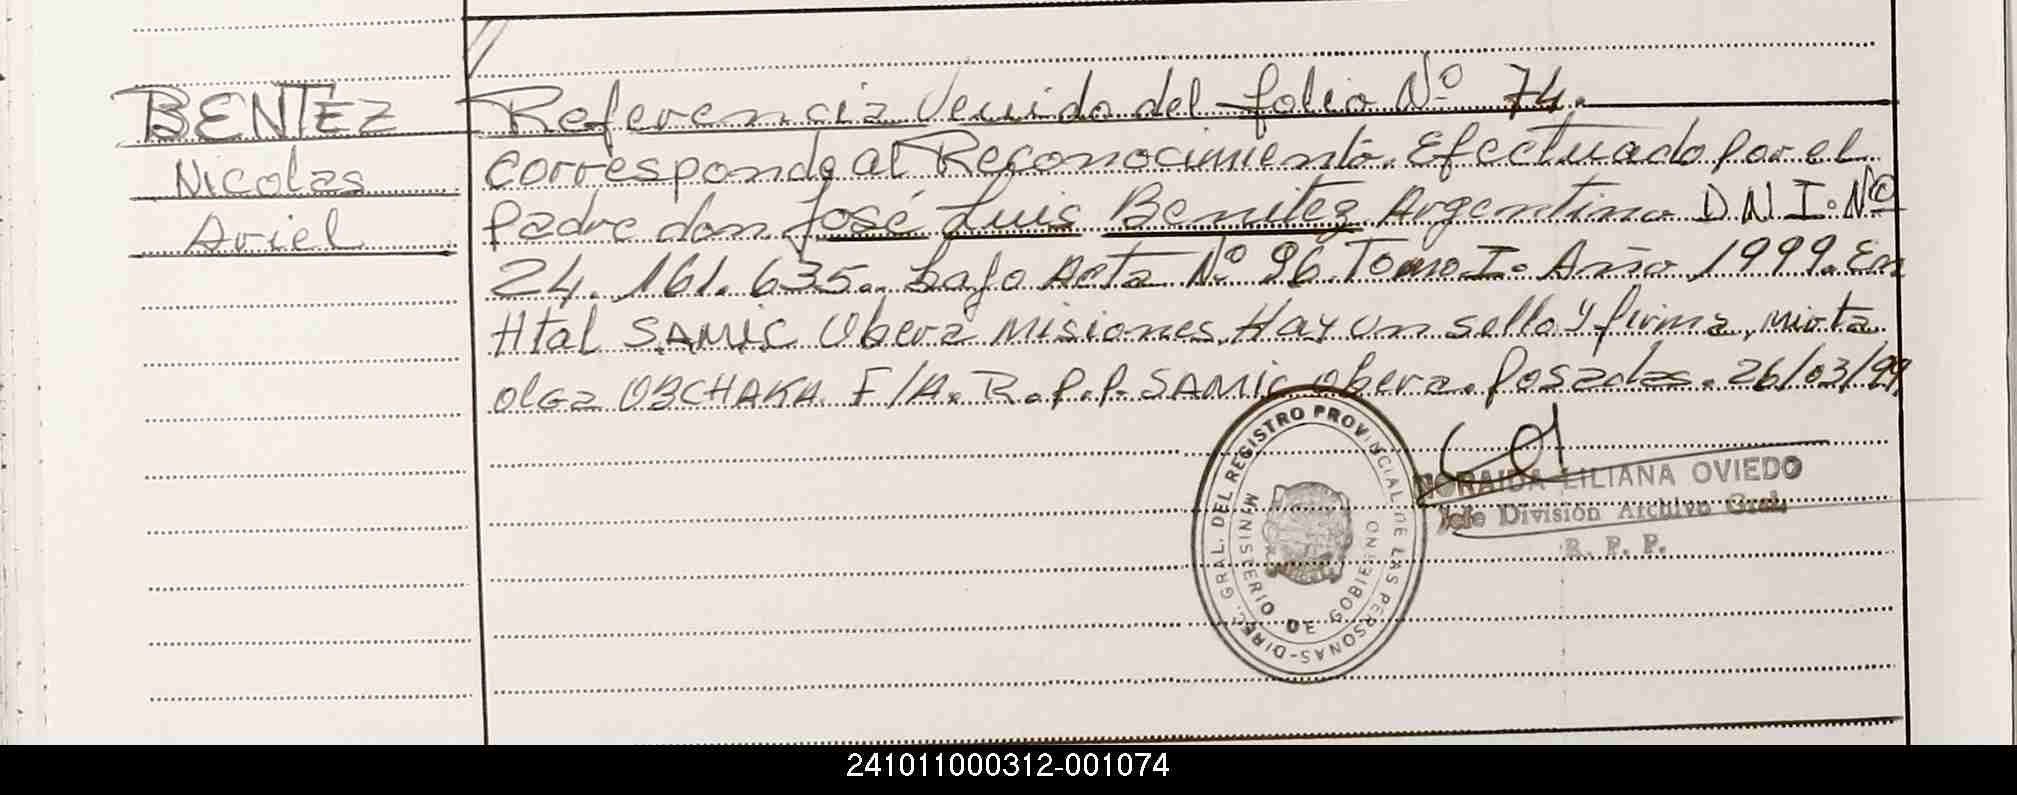 BENTEZ
Nicolas
Ariel
Referencia Venido del folio Nº 74.
corresponde al Reconocimiento. Efectuado Por el
Padre don José Luis Benitez Argentino D N I. Nº
24.161.635. bajo Acta Nº 96 Tomo I. Año 1999. En
Htal SAMIC Obera Misiones, Hay un sello y firma, Mirta
olGa OBCHAKA F/A. R.P.P. SAMIC Obera. Posadas. 26/03/99
DIREC. GRAL. DEL REGISTRO PROVINCIAL DE LAS PERSONAS-
MINISTERIO DE GOBIERNO
NORAIDA LILIANA OVIEDO
Jefe División Archivo Gral.
R. P. P.
241011000312-001074